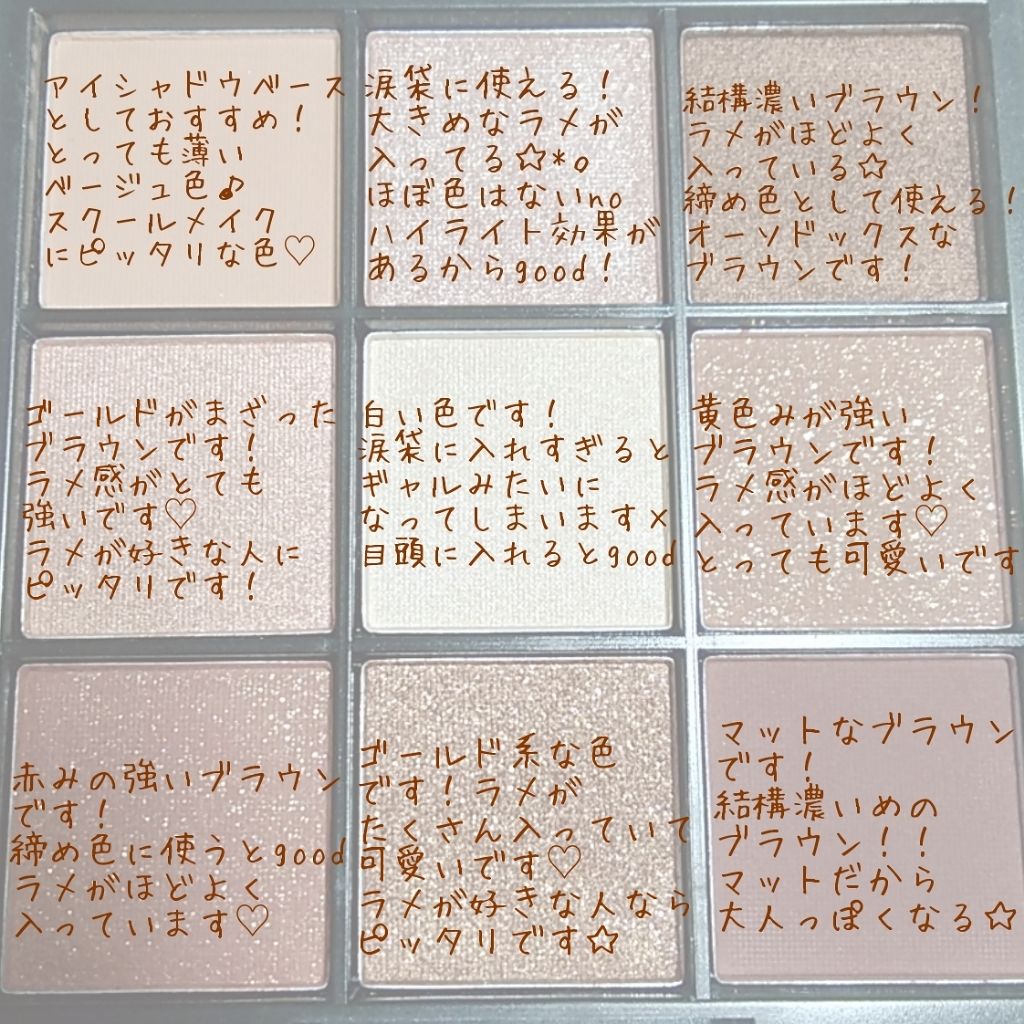 アイシャドウベース
としておすすめ！
とっても薄い
ベージュ色♪
スクールメイク
にピッタリな色♡
涙袋に使える！
大きめなラメが
入ってる☆*o
ほぼ色はないno
ハイライト効果が
あるからgood！
結構濃いブラウン！
ラメがほどよく
入っている☆
締め色として使える！
オーソドックスな
ブラウンです！
ゴールドがまざった
ブラウンです！
ラメ感がとても
強いです♡
ラメが好きな人に
ピッタリです！
白い色です！
涙袋に入れすぎると
ギャルみたいに
なってしまいます×
目頭に入れるとgood
黄色みが強い
ブラウンです！
ラメ感がほどよく
入っています♡
とっても可愛いです
赤みの強いブラウン
です！
締め色に使うとgood
ラメがほどよく
入っています♡
ゴールド系な色
です！ラメが
たくさん入っていて
可愛いです♡
ラメが好きな人なら
ピッタリです☆
マットなブラウン
です！
結構濃いめの
ブラウン！！
マットだから
大人っぽくなる☆